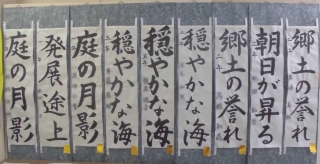 郷土の誉れ
朝日が昇る
郷土の誉れ
穏やかな海
穏やかな海
穏やかな海
庭の月影
発展途上
庭の月影